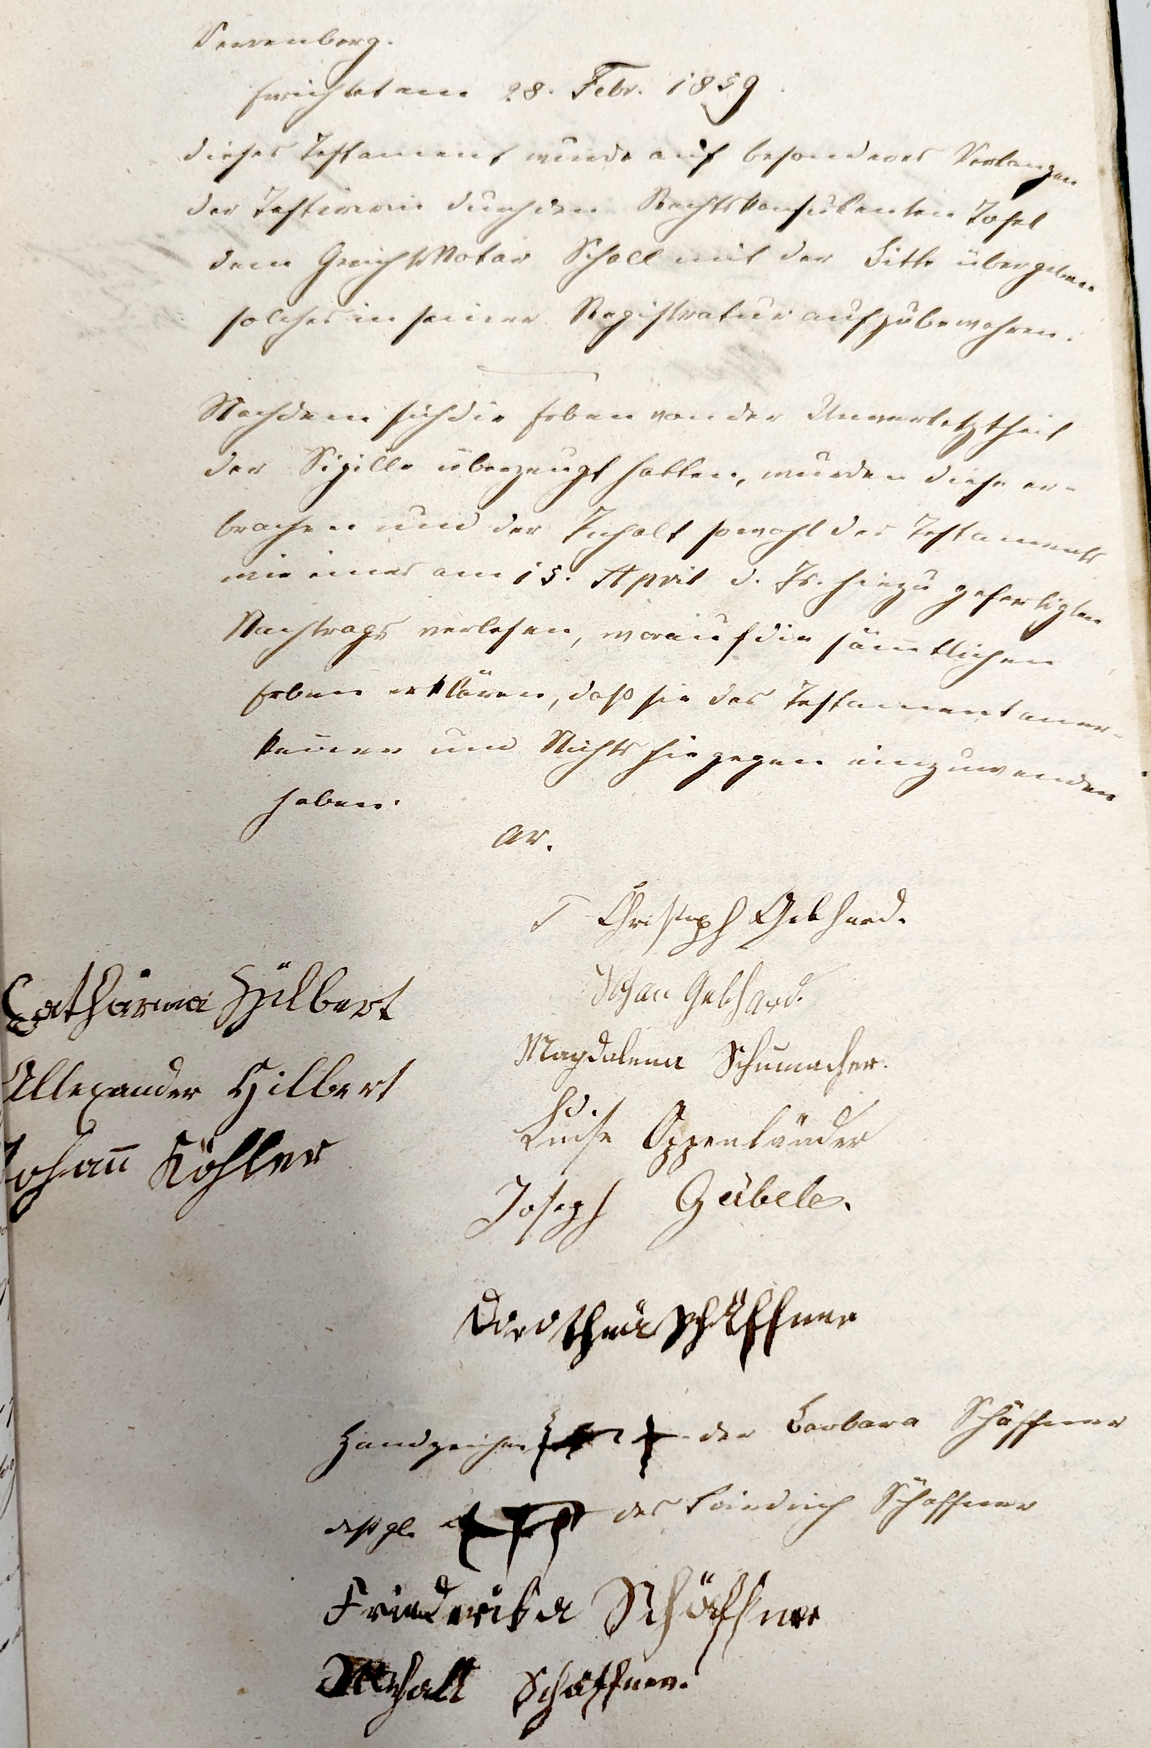 errichtet am 28. Febr. 1859.
dieses Testament wurde auf besonderes Verlangen
der Testirerin durch den Rechtskonsulenten Tafel
dem GerichtsNotar Scholl mit der Bitte übergeben
solches in seiner Registratur aufzubewahren.
Nachdem sich die Erben von der Unverletztheit
der Sigille überzeugt hatten, wurden diese er-
brochen und der Inhalt sowohl des Testaments
wie eines am 15. April d. Js. hiezu gefertigten
Nachtrags verlesen, worauf die sämtlichen
Erben erklären, daß sie das Testament aner-
kennen und Nichts hiegegen einzuwenden
haben.
Christoph Gebhard.
Johan Gebhard.
Catharina Hilbert
Magdalena Schumacher.
Allexander Hilbert
Luise Oppenländer
Johann Köhler
Joseph Gäbele.
Dorothea Schäffner
Handzeichen der Barbara Schäffner
deßgl. des Friedrich Schäffner
Friederika Schäffner
Schäffner.